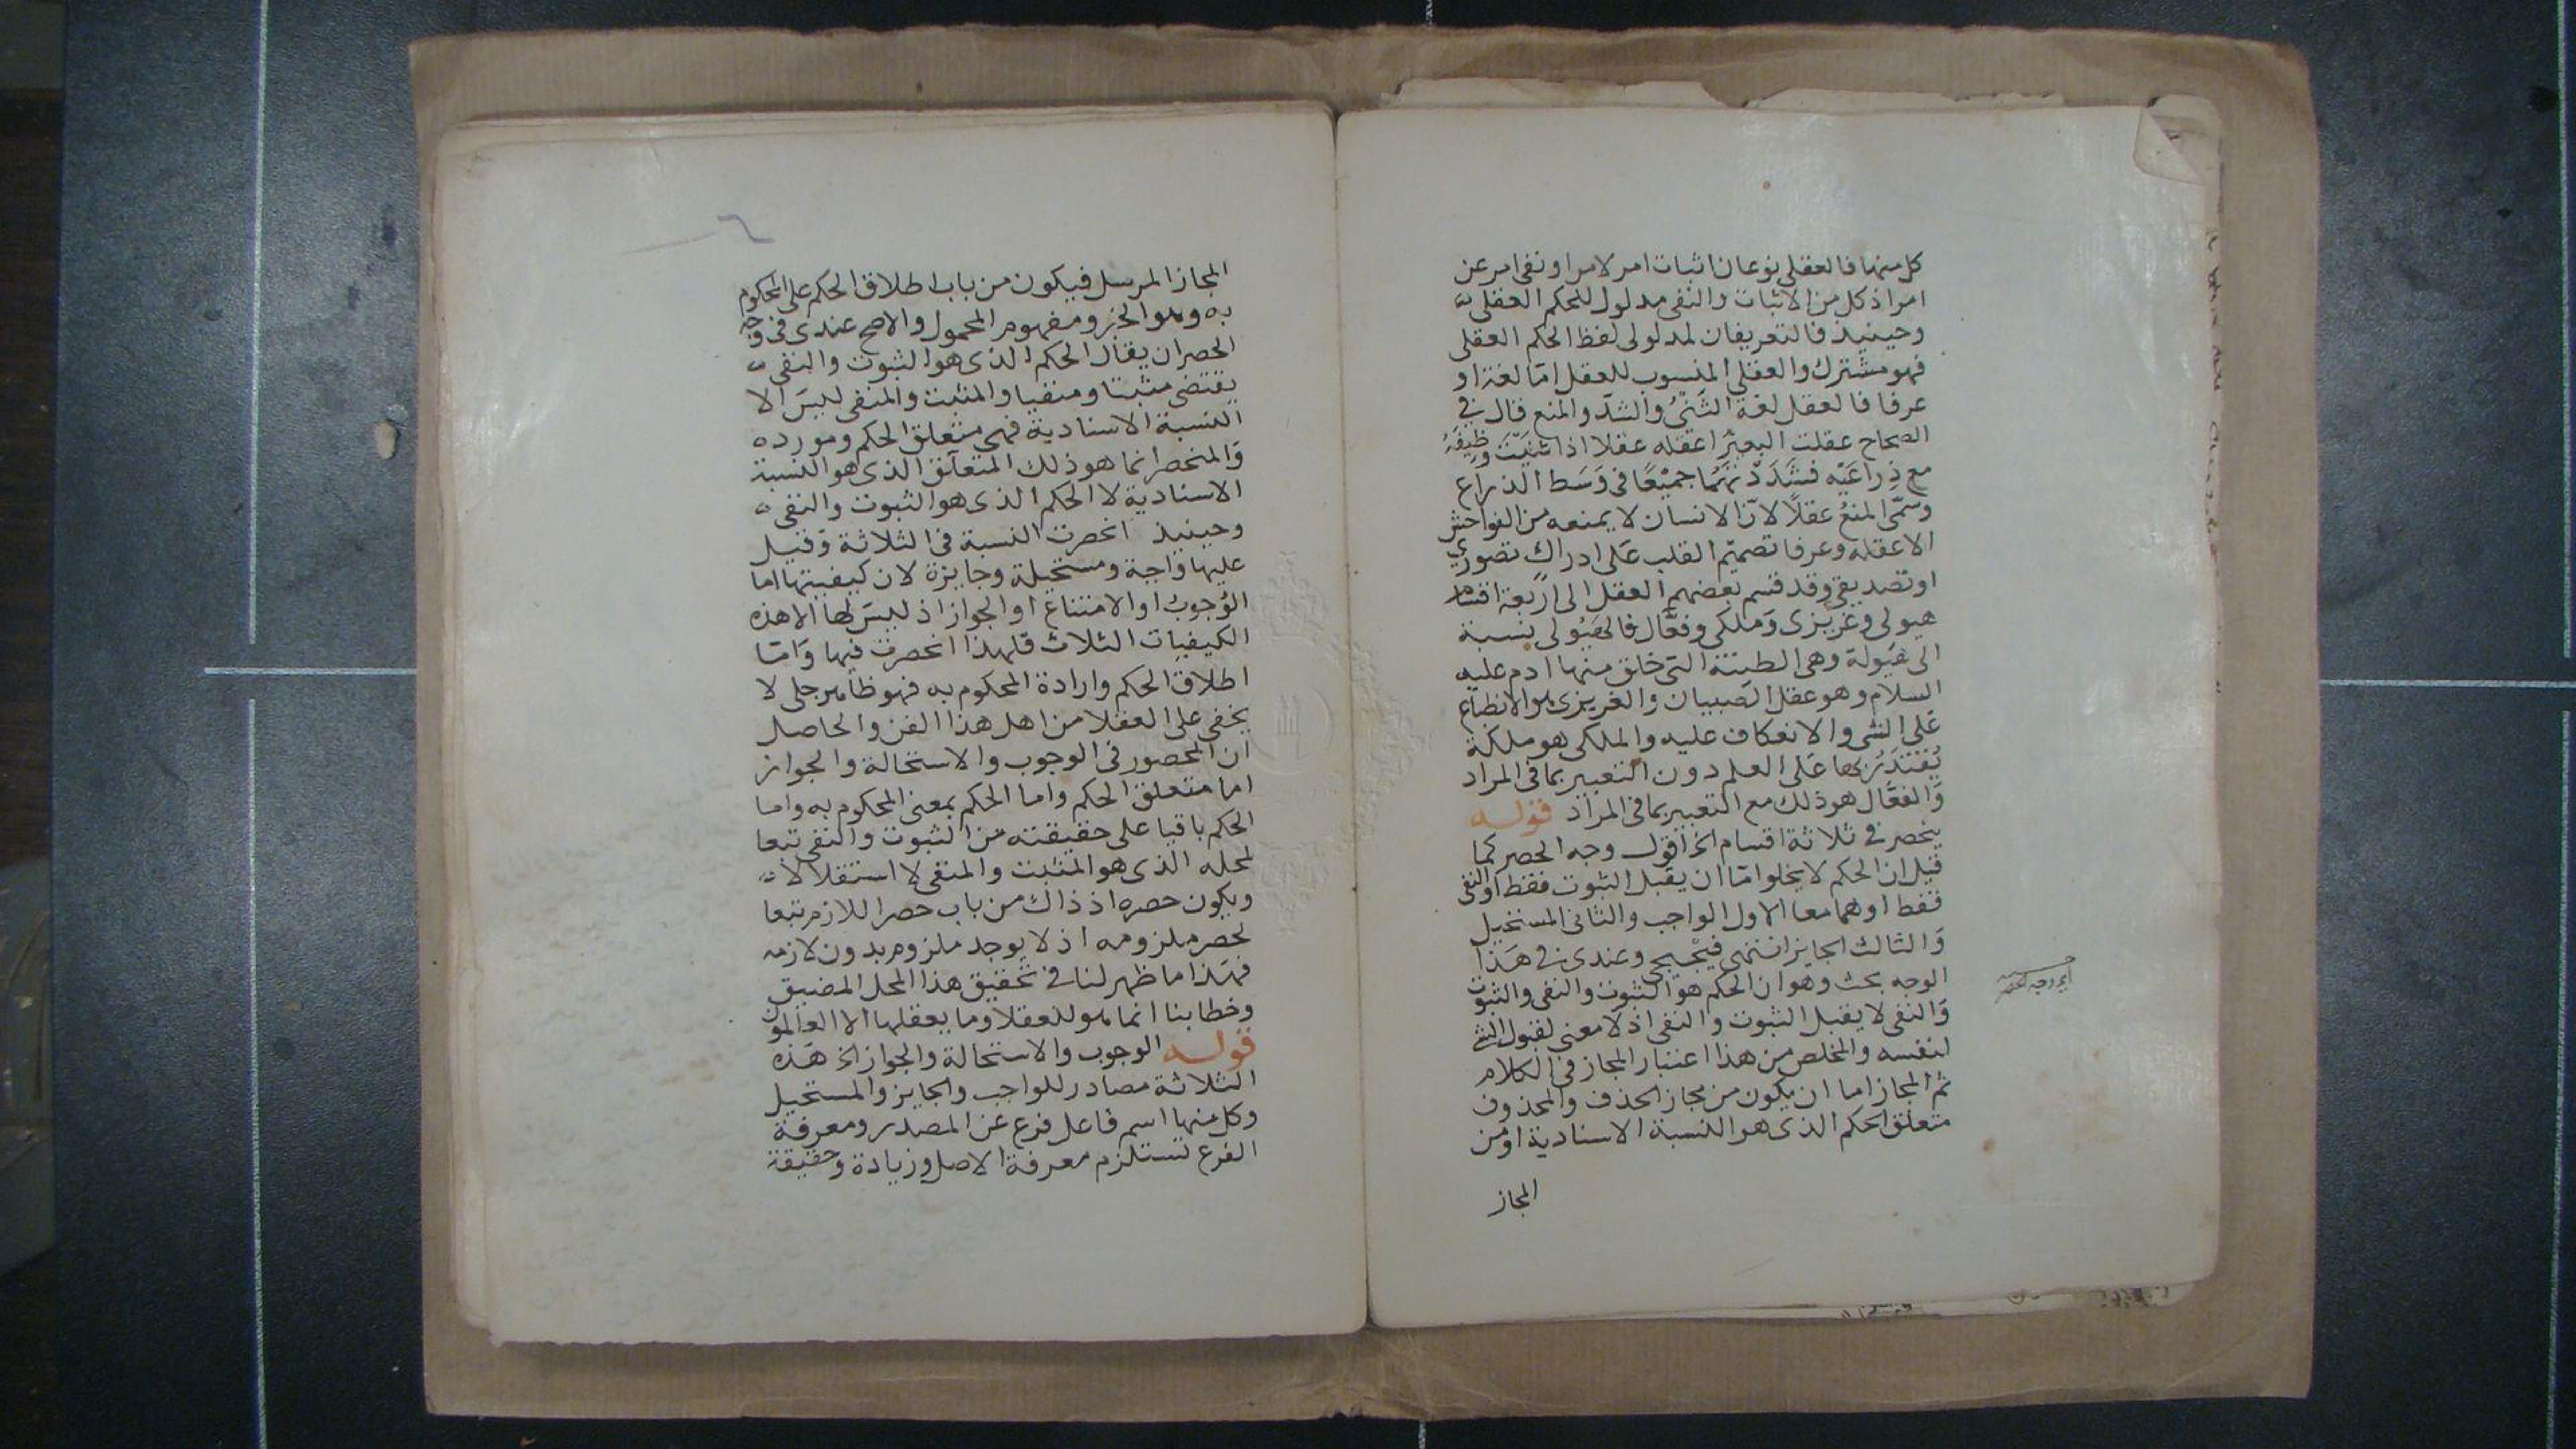 كل منها فالعقلي نوعان اثبات امر لامر او نفي امر عن
امر اذ كل من الاثبات والنفي مدلول للحكم العقلي
وحينيذ فالتعريفان لمدلولي لفظ الحكم العقلي
فهو مشترك والعقلي المنسوب للعقل امّا لغة او
عرفا فالعقل لغة الثَنْىُ والشدّ والمنع قال في
الصحاح عقلت البعيرَ اعقله عقلا اذا ثنَيْتَ وظيفَهُ
مع ذِراعَيْه فشَدَدْتَهُما جميْعًا في وَسَط الذراع
وسُمّي المنعُ عقلًا لانّ الانسان لا يمنعه من الفواحش
الا عقله وعرفا تصميم القلب عَلى ادراك تصوري
او تصديقي وقد قسم بعضهم العقل الى اربعة اقسام
هيولي وغريزى وَملكى وفعَّال فالهيُولى نسبة
الى هيولة وهى الطينة التي خلق منها ادم عليه
السلام وهو عقل الصبيان والغريزى هو الانطباع
عَلى الشى والانعكاف عليه والملكى هو ملكة
يُقْتَدَرُ بها عَلى العلم دون التعبير بما في المراد
وَالفعَّال هو ذلك مع التعبير بما في المراد قوله
ينحصر في ثلاثة اقسام الخ اقول وجه الحصر كما
قيل ان الحكم لا يخلوا امّا ان يقبل الثبوت فقط او النفى
فقط او هما معا الاول الواجب والثاني المستحيل
وَالثالث الجايز انتهى وعندى في هَذا
الوجه بحث وهو ان الحكم هو الثبوت والنفى والثبوت
وَالنفى لا يقبل الثبوت والنفى اذ لا معنى لقبول الشي
لنفسه والمخلص من هذا اعتبار المجاز في الكلام
ثم المجاز اما ان يكون من مجاز الحذف والمحذوف
متعلق الحكم الذى هو النسبة الاسنادية او من
المجاز
المجاز المرسل فيكون من باب اطلاق الحكم على المحكوم
به وهو الخبر ومفهوم المحمول والاصح عندى في وجه
الحصر ان يقال الحكم الذى هو الثبوت والنفى
يقتضى مثبتا ومنفيا والمثبت والمنفى ليسَ الا
النسبة الاسنادية فهى متعلق الحكم ومورده
وَالمنحصر انما هو ذلك المتعلق الذى هو النسبة
الاسنادية لا الحكم الذى هو الثبوت والنفى
وحينيذ انحصرت النسبة في الثلاثة وَقيل
عليها وَاجبة ومستحيلة وجايزة لان كيفيتها اما
الوُجوبُ او الامتناع او الجواز اذ ليسَ لها الا هذه
الكيفيات الثلاث فلهذا انحصرت فيها وَامّا
اطلاق الحكم وارادة المحكوم به فهو ظاهر جلى لا
يخفى على العقلا من اهل هذا الفن والحاصل
ان المحصور في الوجوب والاستحالة والجواز
اما متعلق الحكم واما الحكم بمعنى المحكوم به واما
الحكم باقيا على حقيقته من الثبوت والنفى تبعا
لمحله الذى هو المثبت والمنفى لا استقلالا
ويكون حصره اذ ذاك من باب حصر اللازم تبعا
لحصر ملزومه اذ لا يوجد ملزوم بدون لازمه
فهَذا ما ظهر لنا في تحقيق هذا المحل المضيق
وخطابنا انما هو للعقلا وما يعقلها الا العالمون
قوله الوجوب والاستحالة والجواز الخ هَذه
الثلاثة مصادر للواجب والجايز والمستحيل
وكل منها اسم فاعل فرع عن المصدر ومعرفة
الفرع تستلزم معرفة الاصل وزيادة وحقيقة